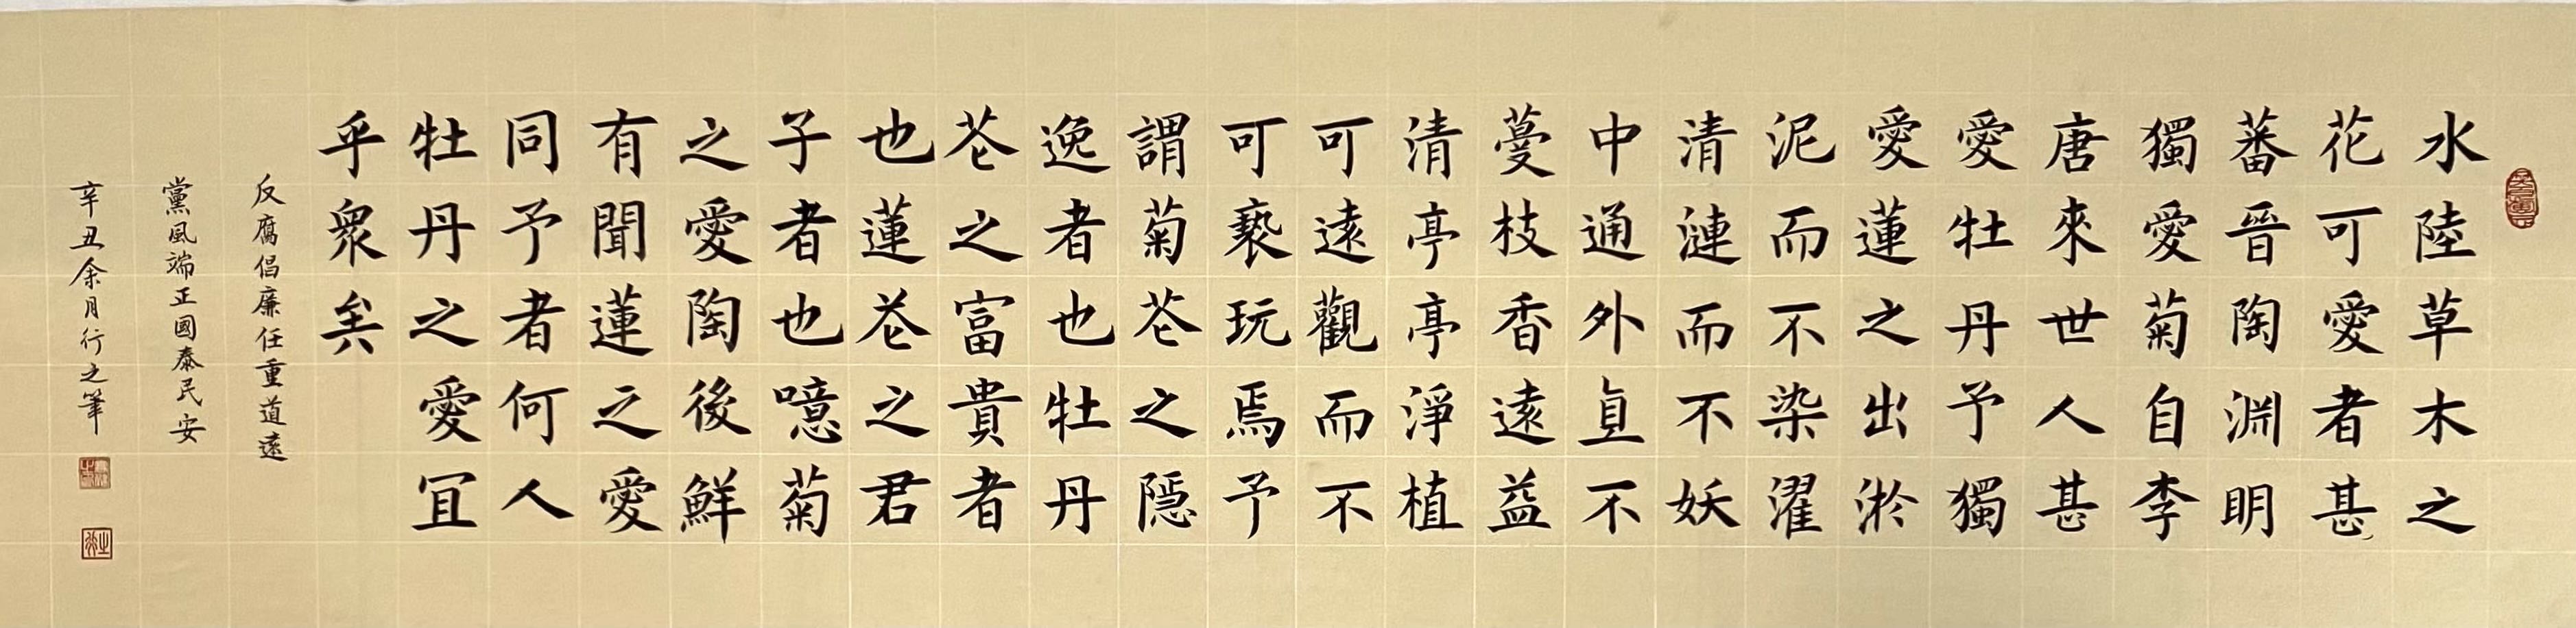 水陸草木之
花可愛者甚
蕃晉陶淵明
獨愛菊自李
唐來世人甚
愛牡丹予獨
愛蓮之出淤
泥而不染濯
清漣而不妖
中通外直不
蔓枝香遠益
清亭亭淨植
可遠觀而不
可褻玩焉予
謂菊花之隱
逸者也牡丹
花之富貴者
也蓮花之君
子者也噫菊
之愛陶後鮮
有聞蓮之愛
同予者何人
牡丹之愛宜
乎衆矣
反腐倡廉任重道遠
黨風端正國泰民安
辛丑余月行之筆